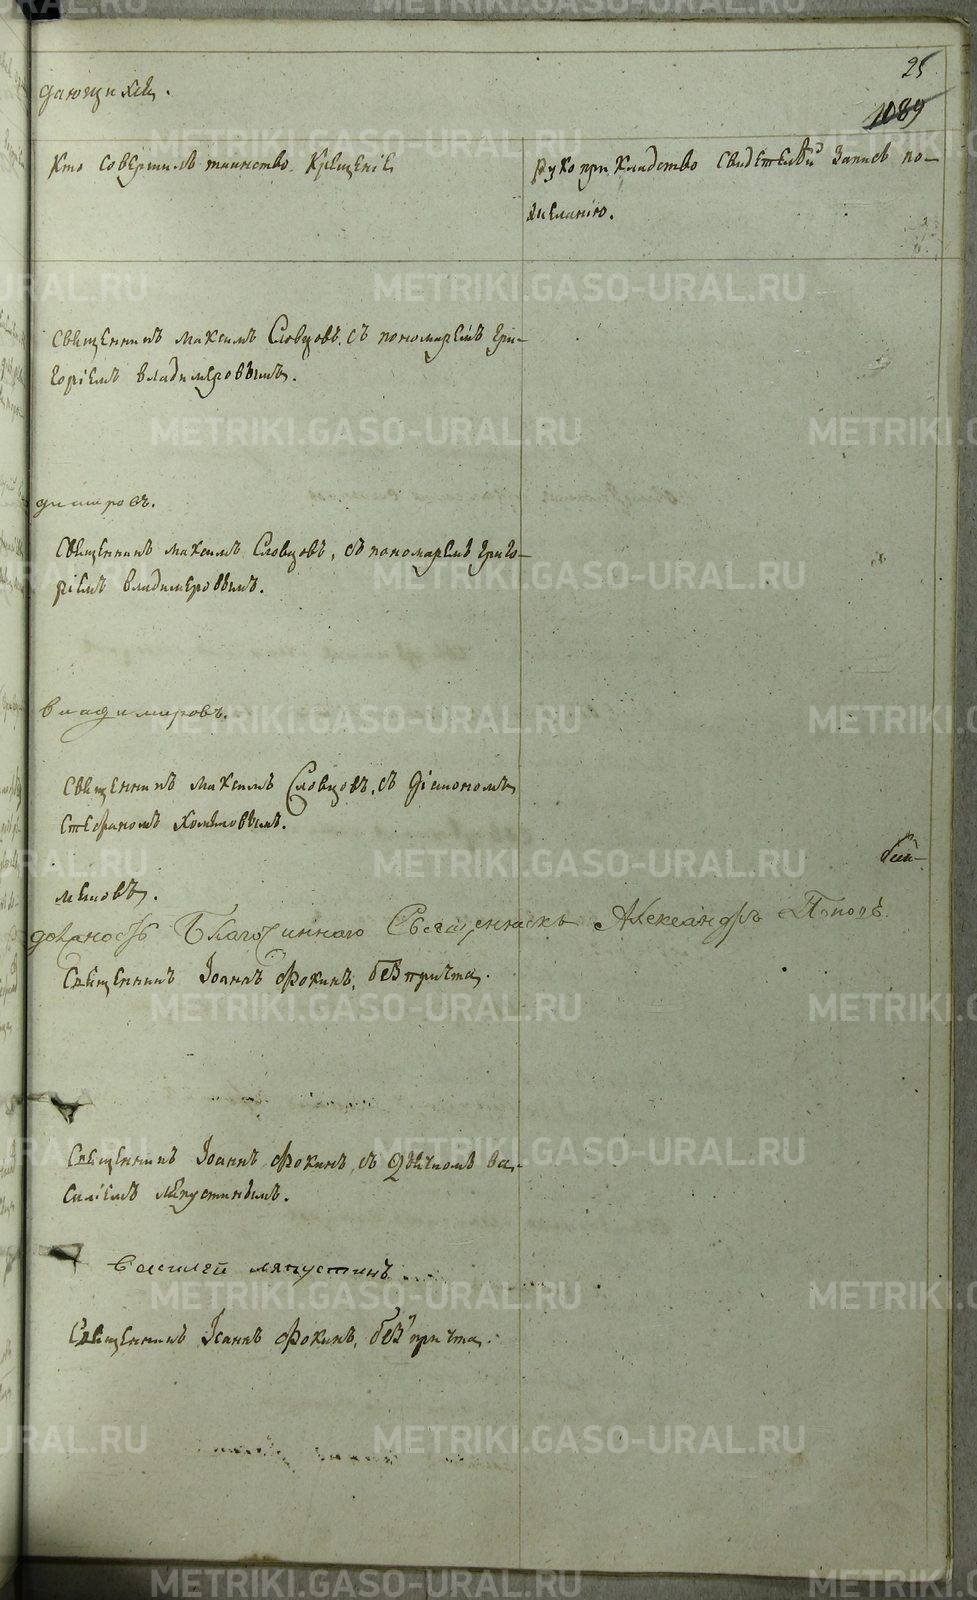 25
1089
дающихся.
Кто совершилъ таинство Крещенiе
Рукоприкладство свидетелей записъ по-
желанiю.
Священникъ Максимъ Словцовъ, съ пономаремъ Гри-
горiемъ Владимеровымъ.
Священникъ Максимъ Словцовъ, съ пономаремъ Григо-
рiемъ Владимеровымъ.
Владимировъ.
Священникъ Максимъ Словцовъ, съ Дiакономъ
Стефаномъ Хомяковымъ.
должность Благочиннаго Священникъ Александръ Поповъ.
Священникъ Iоаннъ Фокинъ, безъ причта.
Священникъ Iоаннъ Фокинъ, съ Дьячкомъ Ва-
силiемъ Ляпустинымъ.
Василей Ляпустинъ
Священникъ Iоаннъ Фокинъ, безъ причта.
METRIKI.GASO-URAL.RU